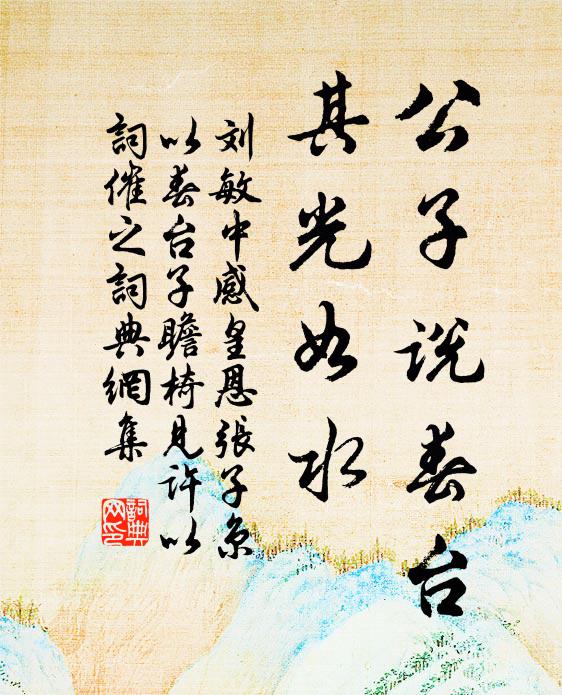 公子说春台
其光如水
刘敏中感皇恩張子京
以春台子瞻椅見許以
詞催之詞典網集
詞典
网印